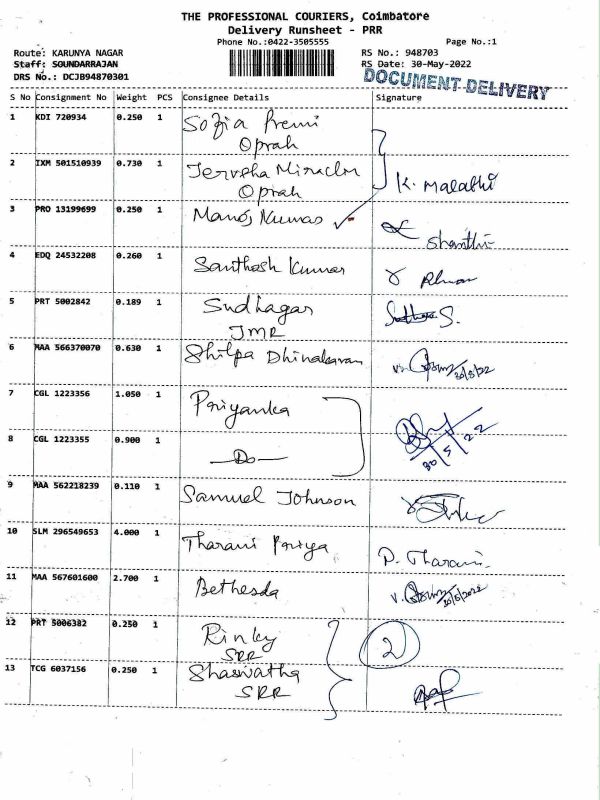 THE PROFESSIONAL COURIERS, Coimbatore
Delivery Runsheet - PRR
Phone No.:0422-3505555
Page No.:1
Route: KARUNYA NAGAR
RS No.: 948703
Staff: SOUNDARRAJAN
RS Date: 30-May-2022
DRS No.: DCJB94870301
DOCUMENT DELIVERY
S No Consignment No Weight PCS Consignee Details Signature
1 KDI 720934 0.250 1 Sofia Premi
Oprah
2 IXM 501510939 0.730 1 Jersha Miraclin
Oprah
K. Malathi
3 PRO 13199699 0.250 1 Manoj Kumar
Shanthi
4 EDQ 24532208 0.260 1 Santhosh Kumar
5 PRT 5002842 0.189 1 Sudhagar
JMR
S.
6 MAA 566370070 0.630 1 Shilpa Dhinakaran
30/5/22
7 CGL 1223356 1.050 1 Priyanka
8 CGL 1223355 0.900 1 —Do—
30/5/22
9 MAA 562218239 0.110 1 Samuel Johnson
10 SLM 296549653 4.000 1 Tharani Priya
P. Tharani
11 MAA 567601600 2.700 1 Bethesda
30/5/2022
12 PRT 5006382 0.250 1 Rinky
SRR
2
13 TCG 6037156 0.250 1 Shaswatha
SRR